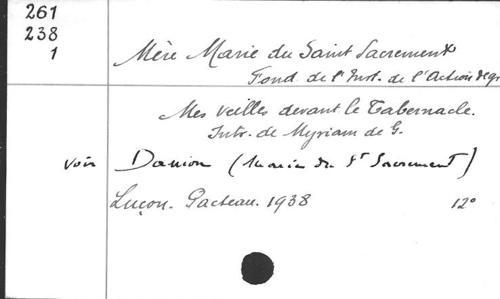 261
238
1
Mère Marie du Saint Sacrement
Fond. de l'Inst. de l'Action de gr
Mes veilles devant le Tabernacle.
Intr. de Myriam de G.
voir Danion (Marie du St Sacrement)
Luçon. Pacteau. 1938 12°